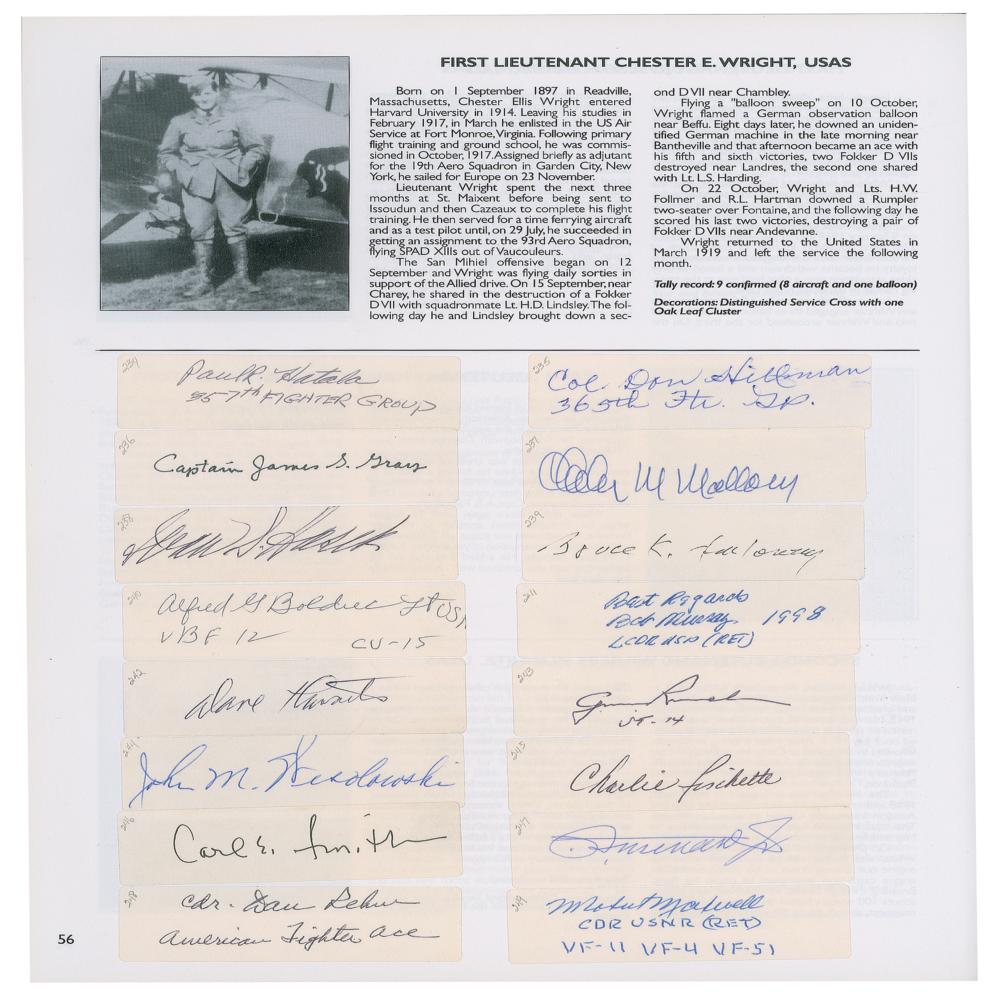 FIRST LIEUTENANT CHESTER E. WRIGHT, USAS
Born on 1 September 1897 in Readville,
Massachusetts, Chester Ellis Wright entered
Harvard University in 1914. Leaving his studies in
February 1917, in March he enlisted in the US Air
Service at Fort Monroe, Virginia. Following primary
flight training and ground school, he was commis-
sioned in October, 1917. Assigned briefly as adjutant
for the 19th Aero Squadron in Garden City, New
York, he sailed for Europe on 23 November.
Lieutenant Wright spent the next three
months at St. Maixent before being sent to
Issoudun and then Cazeaux to complete his flight
training. He then served for a time ferrying aircraft
and as a test pilot until, on 29 July, he succeeded in
getting an assignment to the 93rd Aero Squadron,
flying SPAD XIIIs out of Vaucouleurs.
The San Mihiel offensive began on 12
September and Wright was flying daily sorties in
support of the Allied drive. On 15 September, near
Charey, he shared in the destruction of a Fokker
D VII with squadronmate Lt. H.D. Lindsley. The fol-
lowing day he and Lindsley brought down a sec-
ond D VII near Chambley.
Flying a "balloon sweep" on 10 October,
Wright flamed a German observation balloon
near Beffu. Eight days later, he downed an uniden-
tified German machine in the late morning near
Bantheville and that afternoon became an ace with
his fifth and sixth victories, two Fokker D VIIs
destroyed near Landres, the second one shared
with Lt. L.S. Harding.
On 22 October, Wright and Lts. H.W.
Follmer and R.L. Hartman downed a Rumpler
two-seater over Fontaine, and the following day he
scored his last two victories, destroying a pair of
Fokker D VIIs near Andevanne.
Wright returned to the United States in
March 1919 and left the service the following
month.
Tally record: 9 confirmed (8 aircraft and one balloon)
Decorations: Distinguished Service Cross with one
Oak Leaf Cluster
234
Paul R. Hatala
357th FIGHTER GROUP
235
Col. Don Hillman
365th Ftr. Gp.
236
Captain James S. Gray
237
M Mallory
238
239
Bruce K.
240
Alfred G Bolduc
VBF 12 CV-15
241
Best Regards
Bob Murray 1998
LCDR USN (RET)
242
Dave
243
VT-14
244
John M. Wesolowski
245
Charlie Fischette
246
Carl E. Smith
247
248
Cdr. Dan Rehm
American Fighter Ace
249
Maxwell
CDR USNR (RET)
VF-11 VF-4 VF-51
56